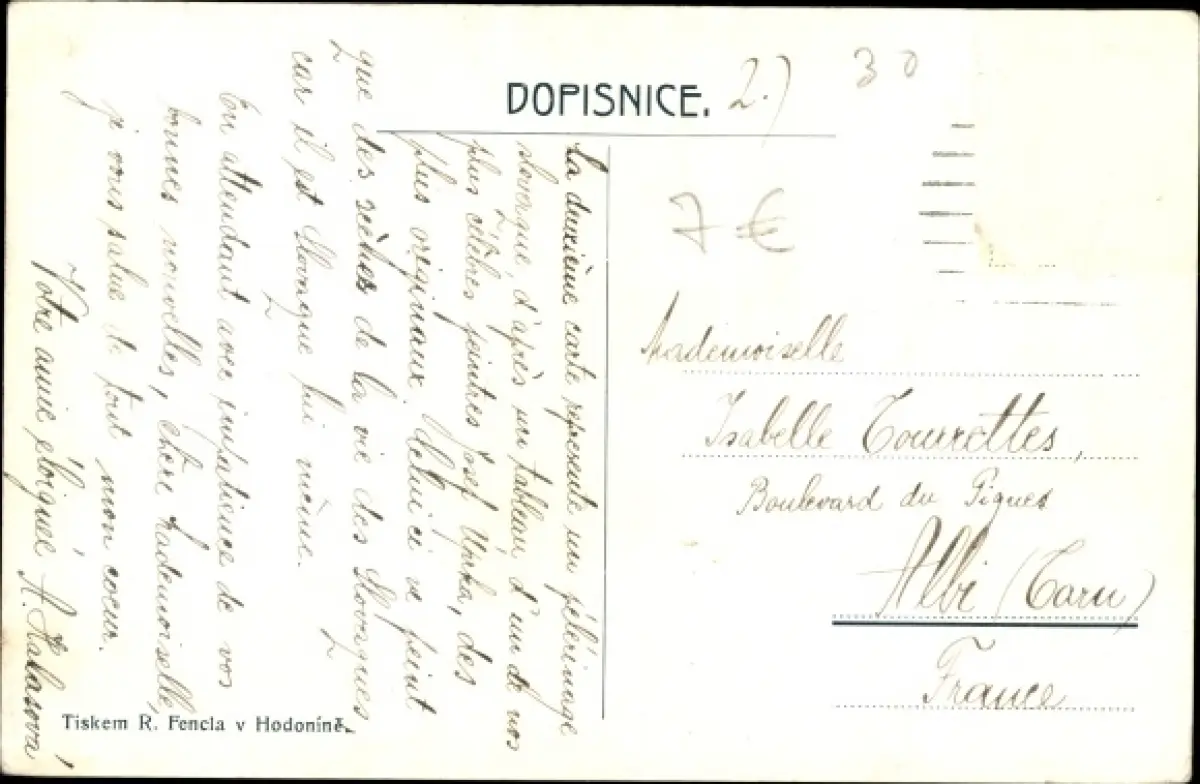 DOPISNICE.
2.)
30
7 €
La deuxième carte représente un pélérinage
slovaque, d'après un tableau d'un de nos
plus célèbres peintres Josef Úprka, des
plus originaux. Celui ci ne peint
que des scènes de la vie des Slovaques,
car il est Slovaque lui même.
En attendant avec impatience de vos
bonnes nouvelles, chère Mademoiselle,
je vous salue de tout mon coeur.
Votre amie éloignée A.
Mademoiselle
Isabelle Tourrettes,
Boulevard du
Albi (Tarn)
France
Tiskem R. Fencla v Hodoníně.